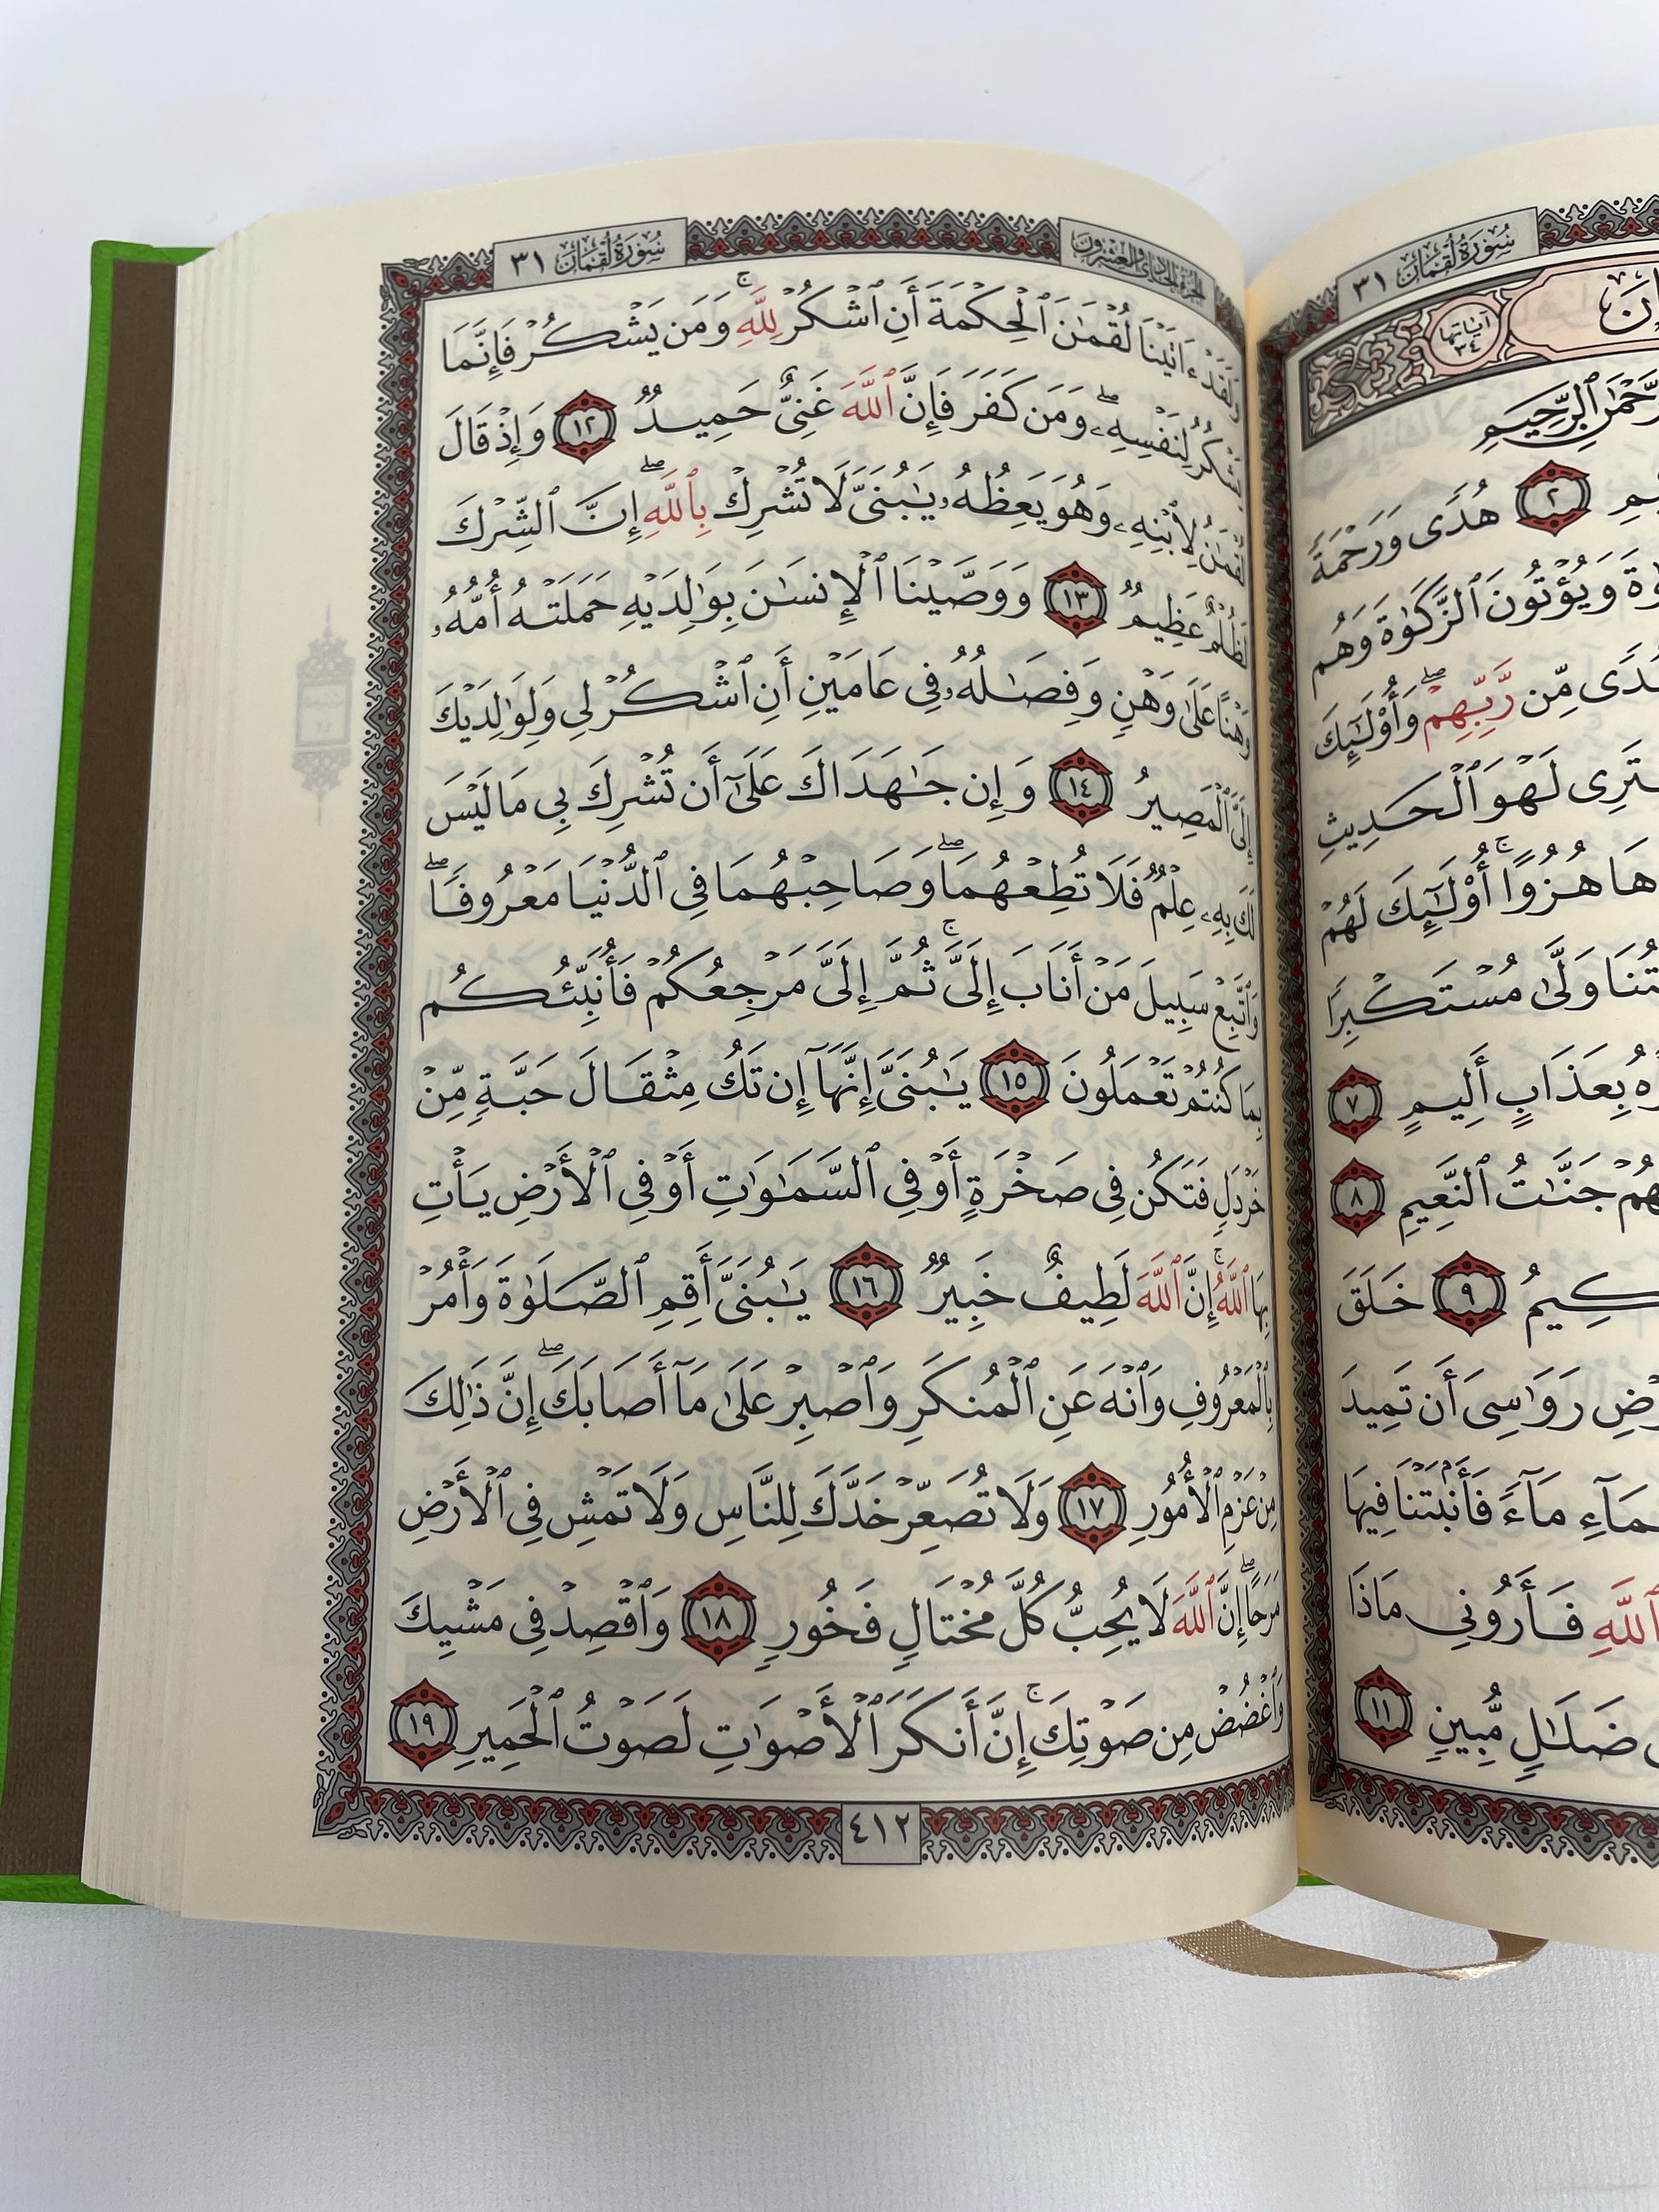 الجزء الحادي والعشرون
سُورَةُ لُقْمَان ٣١
وَلَقَدْ ءَاتَيْنَا لُقْمَٰنَ ٱلْحِكْمَةَ أَنِ ٱشْكُرْ لِلَّهِۚ وَمَن يَشْكُرْ فَإِنَّمَا
يَشْكُرُ لِنَفْسِهِۦۖ وَمَن كَفَرَ فَإِنَّ ٱللَّهَ غَنِىٌّ حَمِيدٌ ١٢ وَإِذْ قَالَ
لُقْمَٰنُ لِٱبْنِهِۦ وَهُوَ يَعِظُهُۥ يَٰبُنَىَّ لَا تُشْرِكْ بِٱللَّهِۖ إِنَّ ٱلشِّرْكَ
لَظُلْمٌ عَظِيمٌ ١٣ وَوَصَّيْنَا ٱلْإِنسَٰنَ بِوَٰلِدَيْهِ حَمَلَتْهُ أُمُّهُۥ
وَهْنًا عَلَىٰ وَهْنٍ وَفِصَٰلُهُۥ فِى عَامَيْنِ أَنِ ٱشْكُرْ لِى وَلِوَٰلِدَيْكَ
إِلَىَّ ٱلْمَصِيرُ ١٤ وَإِن جَٰهَدَاكَ عَلَىٰٓ أَن تُشْرِكَ بِى مَا لَيْسَ
لَكَ بِهِۦ عِلْمٌ فَلَا تُطِعْهُمَاۖ وَصَاحِبْهُمَا فِى ٱلدُّنْيَا مَعْرُوفًاۖ
وَٱتَّبِعْ سَبِيلَ مَنْ أَنَابَ إِلَىَّۚ ثُمَّ إِلَىَّ مَرْجِعُكُمْ فَأُنَبِّئُكُم
بِمَا كُنتُمْ تَعْمَلُونَ ١٥ يَٰبُنَىَّ إِنَّهَآ إِن تَكُ مِثْقَالَ حَبَّةٍ مِّنْ
خَرْدَلٍ فَتَكُن فِى صَخْرَةٍ أَوْ فِى ٱلسَّمَٰوَٰتِ أَوْ فِى ٱلْأَرْضِ يَأْتِ
بِهَا ٱللَّهُۚ إِنَّ ٱللَّهَ لَطِيفٌ خَبِيرٌ ١٦ يَٰبُنَىَّ أَقِمِ ٱلصَّلَوٰةَ وَأْمُرْ
بِٱلْمَعْرُوفِ وَٱنْهَ عَنِ ٱلْمُنكَرِ وَٱصْبِرْ عَلَىٰ مَآ أَصَابَكَۖ إِنَّ ذَٰلِكَ
مِنْ عَزْمِ ٱلْأُمُورِ ١٧ وَلَا تُصَعِّرْ خَدَّكَ لِلنَّاسِ وَلَا تَمْشِ فِى ٱلْأَرْضِ
مَرَحًاۖ إِنَّ ٱللَّهَ لَا يُحِبُّ كُلَّ مُخْتَالٍ فَخُورٍ ١٨ وَٱقْصِدْ فِى مَشْيِكَ
وَٱغْضُضْ مِن صَوْتِكَۚ إِنَّ أَنكَرَ ٱلْأَصْوَٰتِ لَصَوْتُ ٱلْحَمِيرِ ١٩
٤١٢
سُورَةُ لُقْمَان ٣١
آيَاتُهَا ٣٤
ٱلرَّحِيمِ
٢ هُدًى وَرَحْمَةً
وَيُؤْتُونَ ٱلزَّكَوٰةَ وَهُم
مِّن رَّبِّهِمْۖ وَأُو۟لَٰٓئِكَ
لَهْوَ ٱلْحَدِيثِ
هُزُوًاۚ أُو۟لَٰٓئِكَ لَهُمْ
وَلَّىٰ مُسْتَكْبِرًا
بِعَذَابٍ أَلِيمٍ ٧
جَنَّٰتُ ٱلنَّعِيمِ ٨
٩ خَلَقَ
رَوَٰسِىَ أَن تَمِيدَ
مَآءً فَأَنۢبَتْنَا فِيهَا
ٱللَّهِ فَأَرُونِى مَاذَا
ضَلَٰلٍ مُّبِينٍ ١١